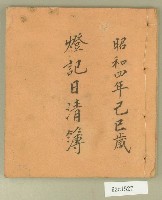 昭和四年己巳歲
燈記日清簿